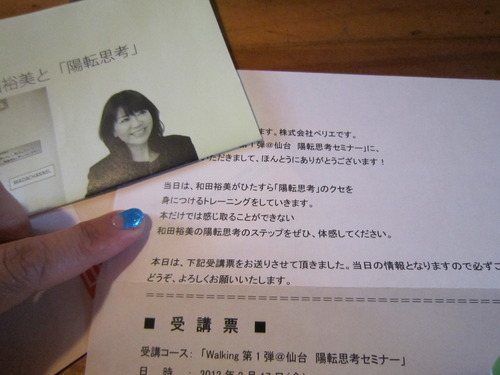 田裕美と「陽転思考」
ます。株式会社ペリエです。
第1弾@仙台　陽転思考セミナー」に、
いただきまして、ほんとうにありがとうございます！
当日は、和田裕美がひたすら「陽転思考」のクセを
身につけるトレーニングをしていきます。
本だけでは感じ取ることができない
和田裕美の陽転思考のステップをぜひ、体感してください。
本日は、下記受講票をお送りさせて頂きました。当日の情報となりますので必ずご
どうぞ、よろしくお願いいたします。
■ 受講票 ■
受講コース：「Walking 第1弾@仙台　陽転思考セミナー」
日　時　：2012年2月17日(金)